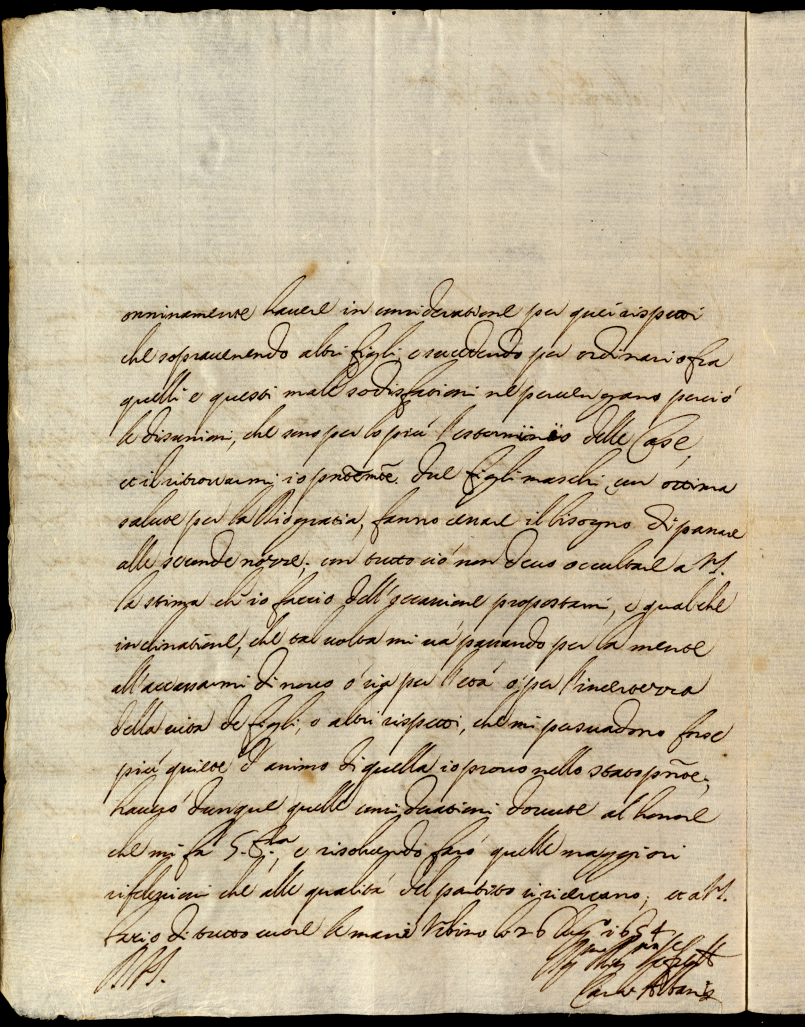 onninamente hauere in consideratione per quei rispetti
che soprauenendo altri figli, e succedendo per ordinario fra
quelli e questi male sodisfationi ne peruengano perciò
le disunioni, che sono per lo più l'esterminio delle Case,
et il ritrovarmi io pñtemte due figli maschi con ottima
salute per la Dio gratia, fanno cessare il bisogno di passare
alle seconde nozze; con tutto ciò non deuo occultare a V.S.
la stima ch'io faccio dell'occasione propostami, e qualche
inclinatione, che tal uolta mi uà passando per la mente
all'accasarmi di nouo ò sia per l'età ò per l'incertezza
della uita de figli, o altri rispetti, che mi persuadono forse
più quiete d'animo di quella io prouo nello stato pñte;
haurò dunque quelle considerationi douute al honore
che mi fà S. E., e risoluendo farò quelle maggiori
riflessioni che alle qualità del partito si ricercano; et a V.S.
bacio di tutto cuore le mani Vrbino li 26 1654
Carlo Albani